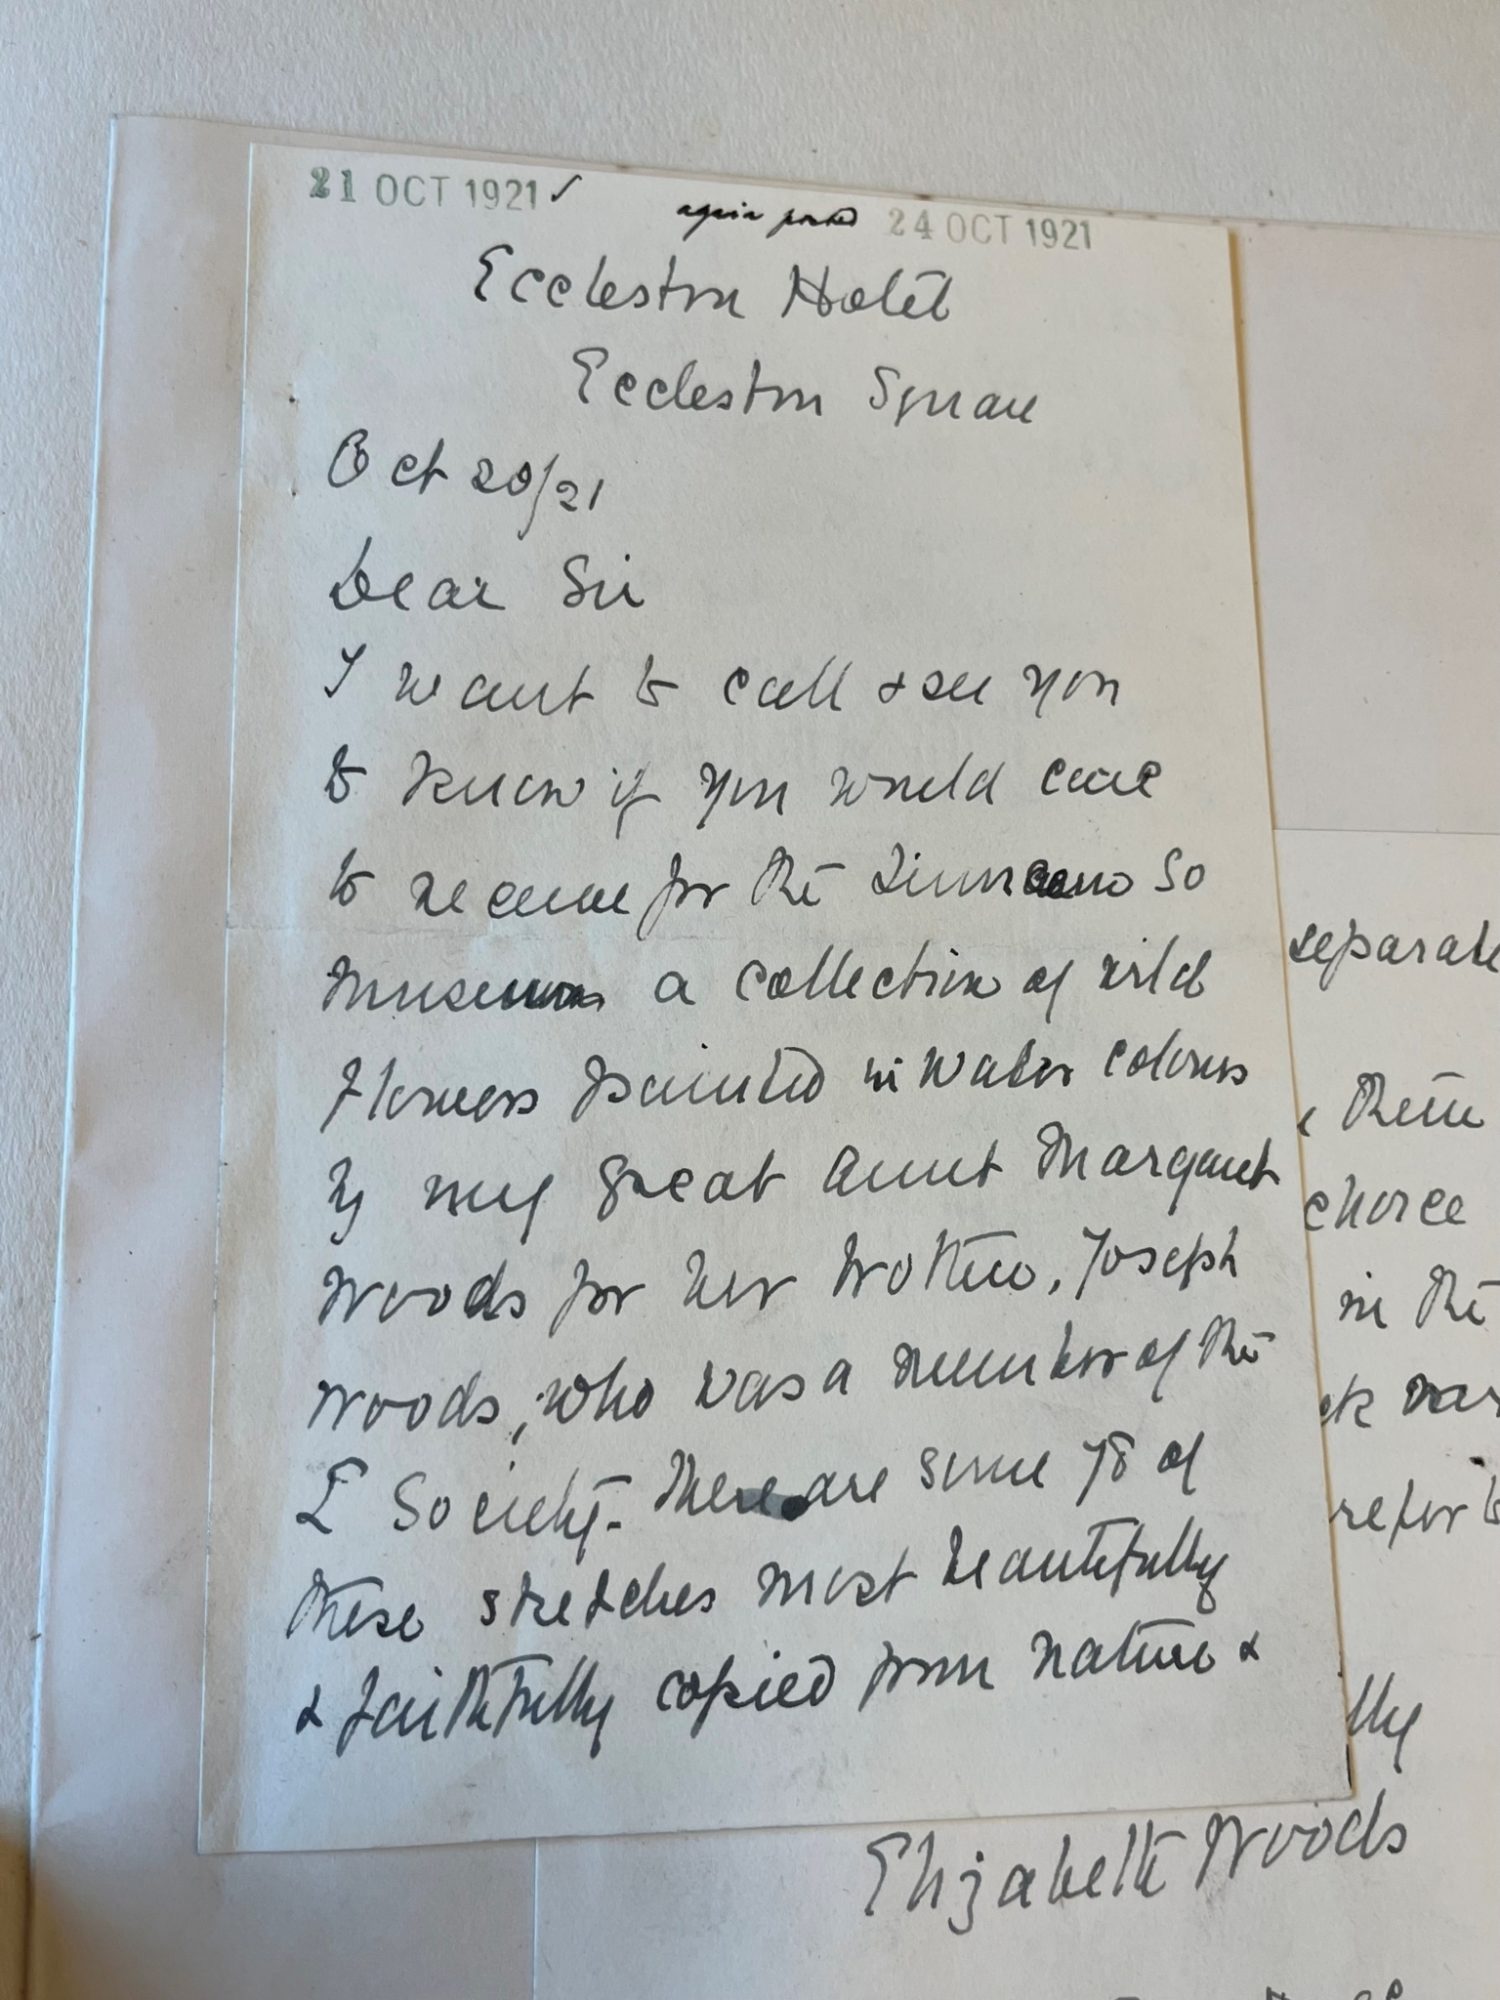 21 OCT 1921 ✓ again posted 24 OCT 1921
Eccleston Hotel
Eccleston Square
Oct 20/21
Dear Sir
I want to call & see you
to know if you would care
to receive for the Linnaean So
Museum a collection of wild
Flowers painted in water colours
by my great aunt Margaret
Woods for her brother, Joseph
Woods, who was a member of the
L Society. There are some 78 of
these sketches most beautifully
& faithfully copied from nature &
separate
their
choice
in the
refer to
lly
Elizabeth Woods